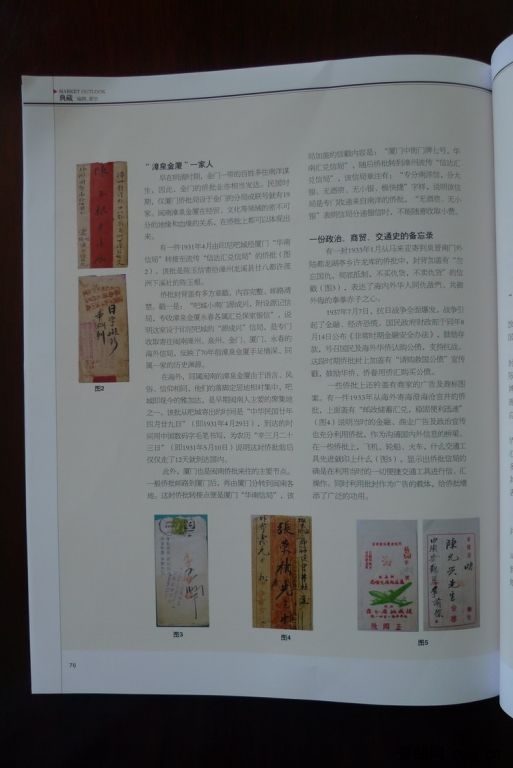 MARKET OUTLOOK
典藏
“漳泉金厦”一家人
早在明清时期，金门一带的百姓多往南洋谋
生，因此，金门的侨批业亦相当发达。民国时
期，仅厦门侨批局设于金门的分局或联号就有19
家。闽南漳泉金厦在经贸、文化等领域的密不可
分的地缘和血缘的关系，在侨批上都可以体现出
来。
有一件1931年4月由印尼吧城经厦门“华南
信局”转接至流传“信达汇兑信局”的侨批（图
2）。该批是陈玉信寄给漳州龙溪县廿八都许茂
洲下溪社的陈玉根。
侨批封背盖有多方章戳，内容完整，邮路清
楚。戳一是：“吧城小南门源成兴，附设源记信
局，专收漳泉金厦永春各属汇兑保家银信”，说
明这家设于印尼吧城的“源成兴”信局，是专门
收取寄往闽南漳州、泉州、金门、厦门、永春的
海外信局，反映了70年前漳泉金厦手足情深、同
属一家的历史渊源。
在海外，同属闽南的漳泉金厦由于语言、风
俗、信仰相同，他们的落脚定居地相对集中。吧
城即现今的雅加达，是早期闽南人主要的聚集地
之一。该批从吧城寄出的时间是“中华民国廿年
四月廿九日”（即1931年4月29日），到达的时
间用中国数码字毛笔书写，为农历“辛三月二十
三日”（即1931年5月10日）说明这封侨批前后
仅仅走了12天就到达国内。
此外，厦门也是闽南侨批来往的主要节点。
一般侨批邮路到厦门后，再由厦门分转到闽南各
地。这封侨批转接点便是厦门“华南信局”，该
局加盖的信戳内容是：“厦门中街门牌七号，华
南汇兑信局”，随后侨批转到漳州流传“信达汇
兑信局”，该信局章注有：“专分南洋信，分大
银，无酒资，无小银，极快捷”字样，说明该信
局是专门收递来自南洋的侨批，“无酒资，无小
银”表明信局分递银信时，不能随意收取小费。
一份政治、商贸、交通史的备忘录
有一封1933年1月从马来亚寄到泉晋南门外
勿忘国仇，彻底抵制，不买仇货，不卖仇货”的信
戳（图3），表达了海内外华人同仇敌忾，共赴
外侮的拳拳赤子之心。
1937年7月7日，抗日战争全面爆发，战争引
起了金融、经济恐慌，国民政府财政部于同年8
月14日公布《非常时期金融安全办法》，鼓励存
款，号召国民及海外华侨认购公债，支持抗战。
这段时期侨批封上加盖有“请购救国公债”宣传
戳，鼓励华侨、侨眷用侨汇购买公债。
一些侨批上还盖有商家的广告及商标图
案。有一件1933年从海外寄海澄海沧官井的侨
批，上面盖有“邮政储蓄汇兑，稳固便利迅速”
（图4）说明当时的金融、商业广告及政治宣传
也充分利用侨批，作为沟通国内外信息的桥梁。
在一些侨批上，飞机、轮船、火车，什么交通工
具先进就印上什么（图5），显示出侨批信局的
确是在利用当时的一切便捷交通工具进行信、汇
操作，同时利用批封作为广告的载体，给侨批增
添了广泛的功用。
图2
图3
图4
图5
76